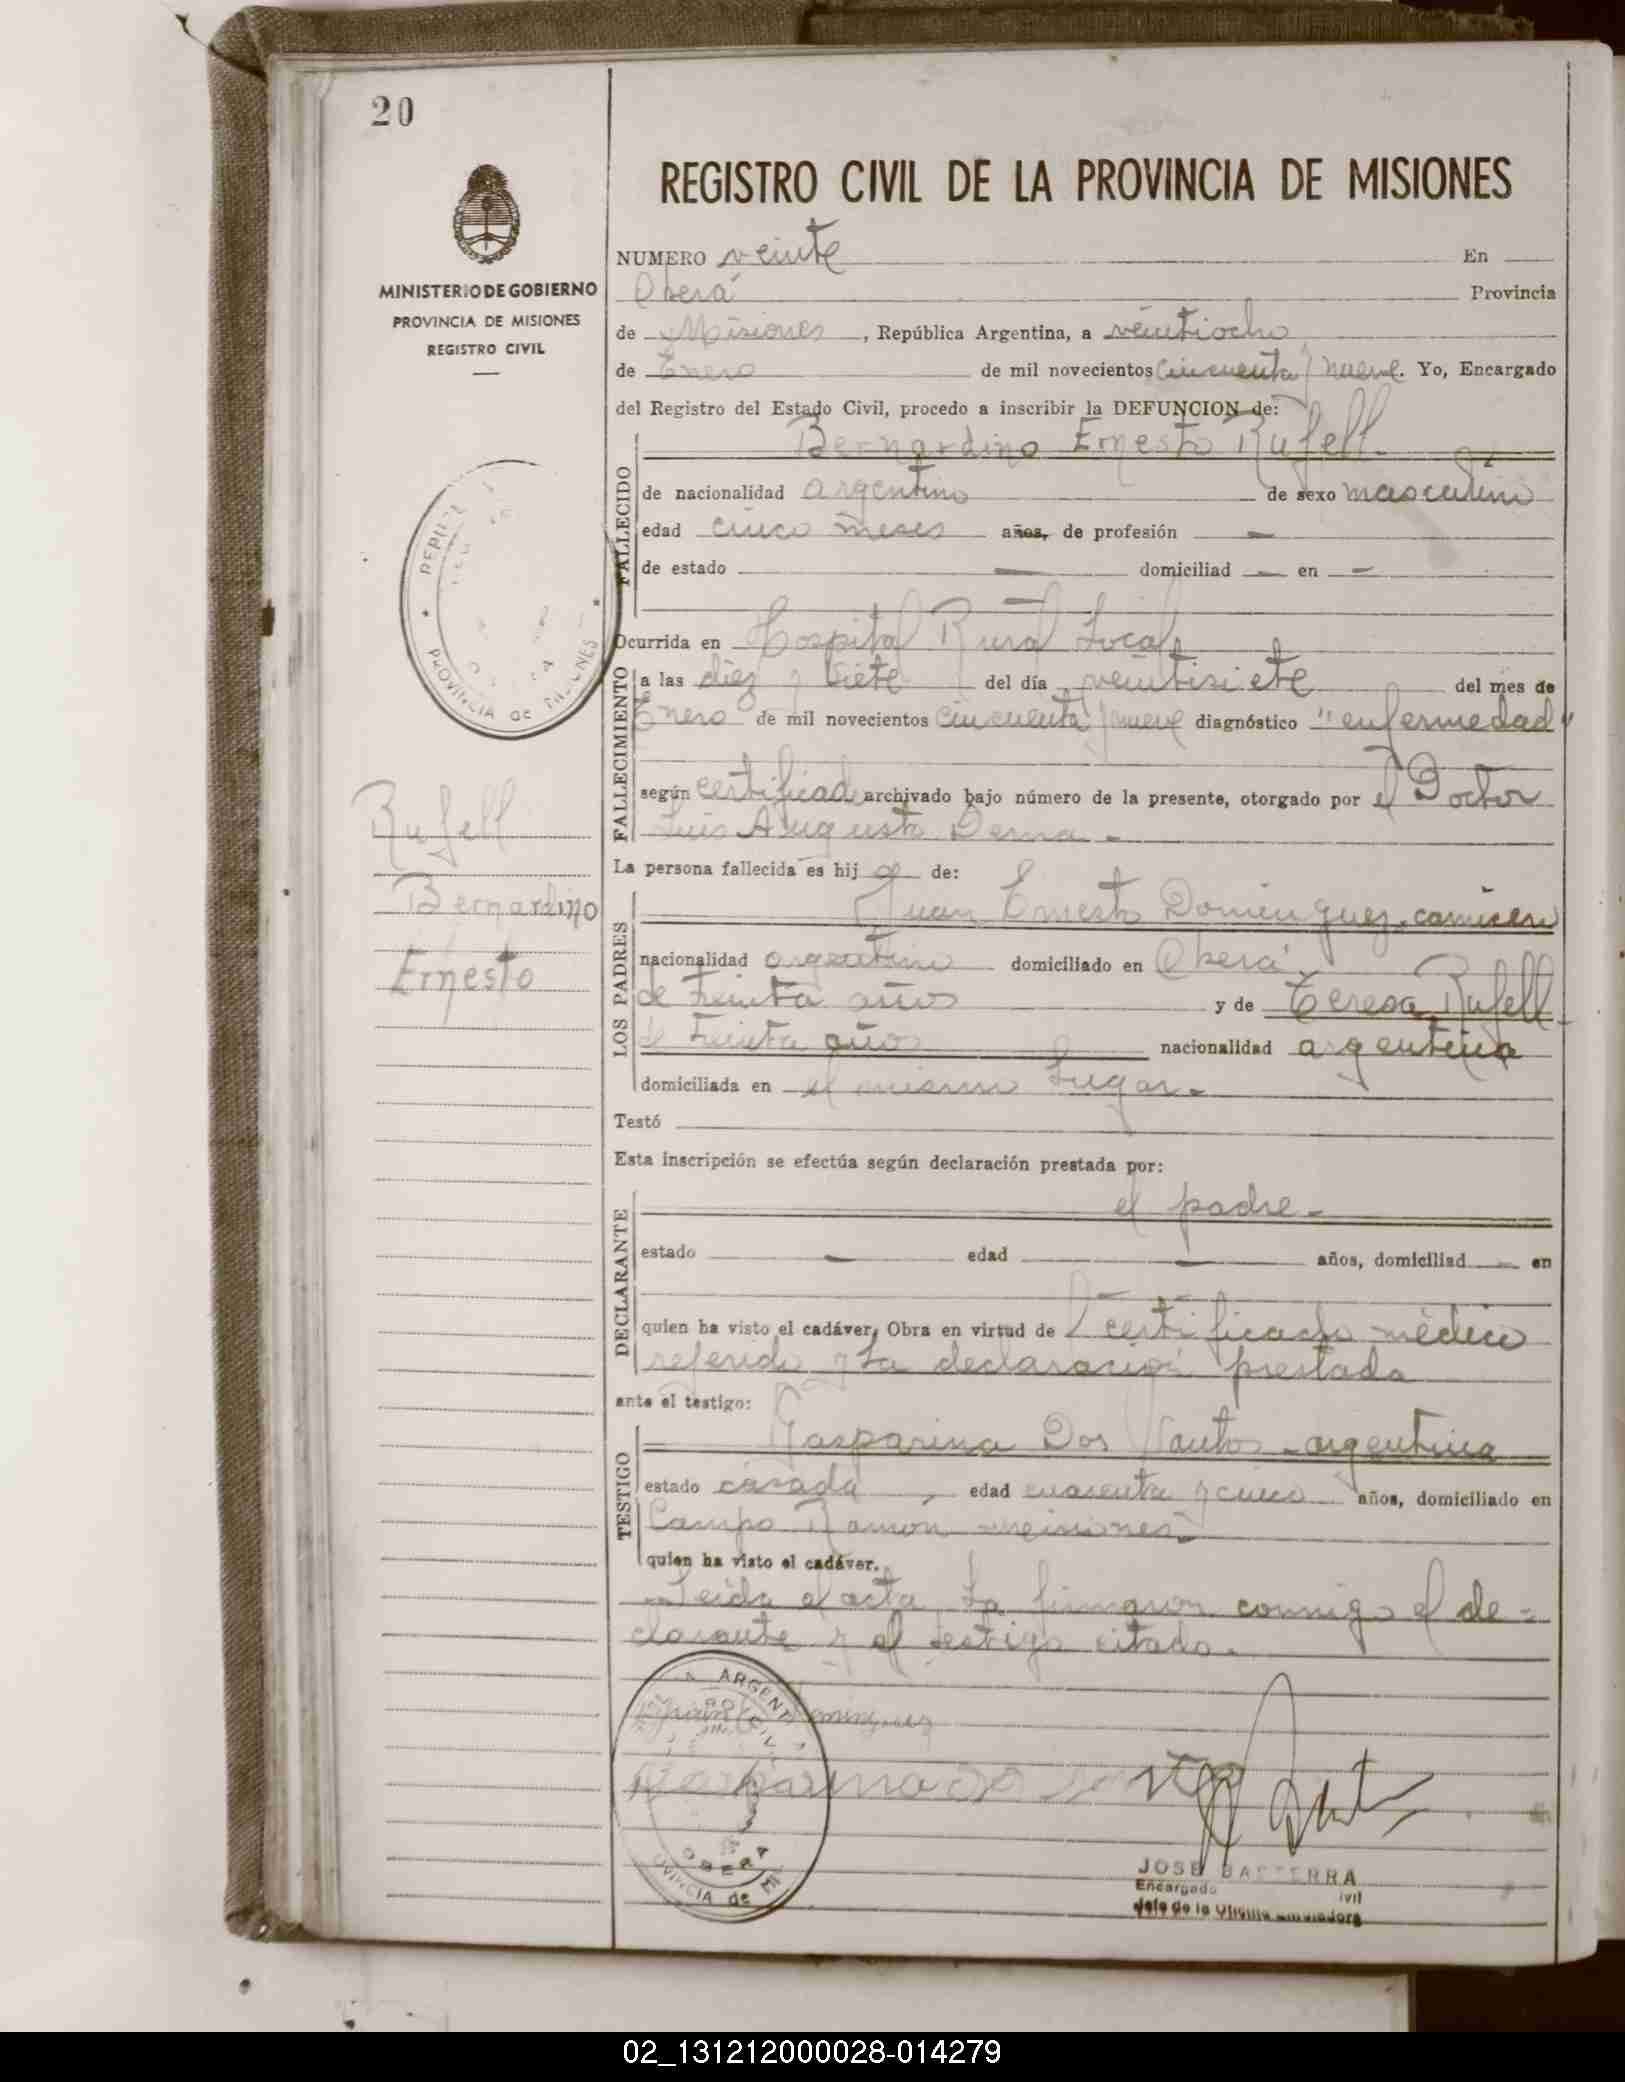 20
REGISTRO CIVIL DE LA PROVINCIA DE MISIONES
MINISTERIO DE GOBIERNO
PROVINCIA DE MISIONES
REGISTRO CIVIL
NUMERO veinte En
Oberá Provincia
de Misiones, República Argentina, a veintiocho
de Enero de mil novecientos cincuenta y nueve. Yo, Encargado
del Registro del Estado Civil, procedo a inscribir la DEFUNCION de:
Bernardino Ernesto Rufell.
FALLECIDO
de nacionalidad argentino de sexo masculino
edad cinco meses años, de profesión —
de estado — domiciliad — en —
Ocurrida en Hospital Rural Local
FALLECIMIENTO
a las diez y siete del día veintisiete del mes de
Enero de mil novecientos cincuenta y nueve diagnóstico "enfermedad"
según certificado archivado bajo número de la presente, otorgado por el Doctor
Luis Augusto Derna.-
La persona fallecida es hijo de:
LOS PADRES
Juan Ernesto Dominguez, carnicero
nacionalidad argentino domiciliado en Oberá
de treinta años y de Teresa Rufell
de treinta años nacionalidad argentina
domiciliada en el mismo lugar.-
Testó
Esta inscripción se efectúa según declaración prestada por:
DECLARANTE
el padre.-
estado — edad — años, domiciliad — en
quien ha visto el cadáver, Obra en virtud del certificado médico
referido y la declaración prestada
ante el testigo:
TESTIGO
Gasparina Dos Santos - argentina
estado casada, edad cuarenta y cinco años, domiciliado en
Campo Ramon - misiones.-
quien ha visto el cadáver.
Leida el acta la firmaron conmigo el de=
clarante y el testigo citado.-
Rufell
Bernardino
Ernesto
REPUBL
PROVINCIA de MISIONES
ARGENT
OBERA
VINCIA de MI
Gasparina do santo
JOSE BASTERRA
Encargado ivil
Jefe de la Oficina
02_131212000028-014279